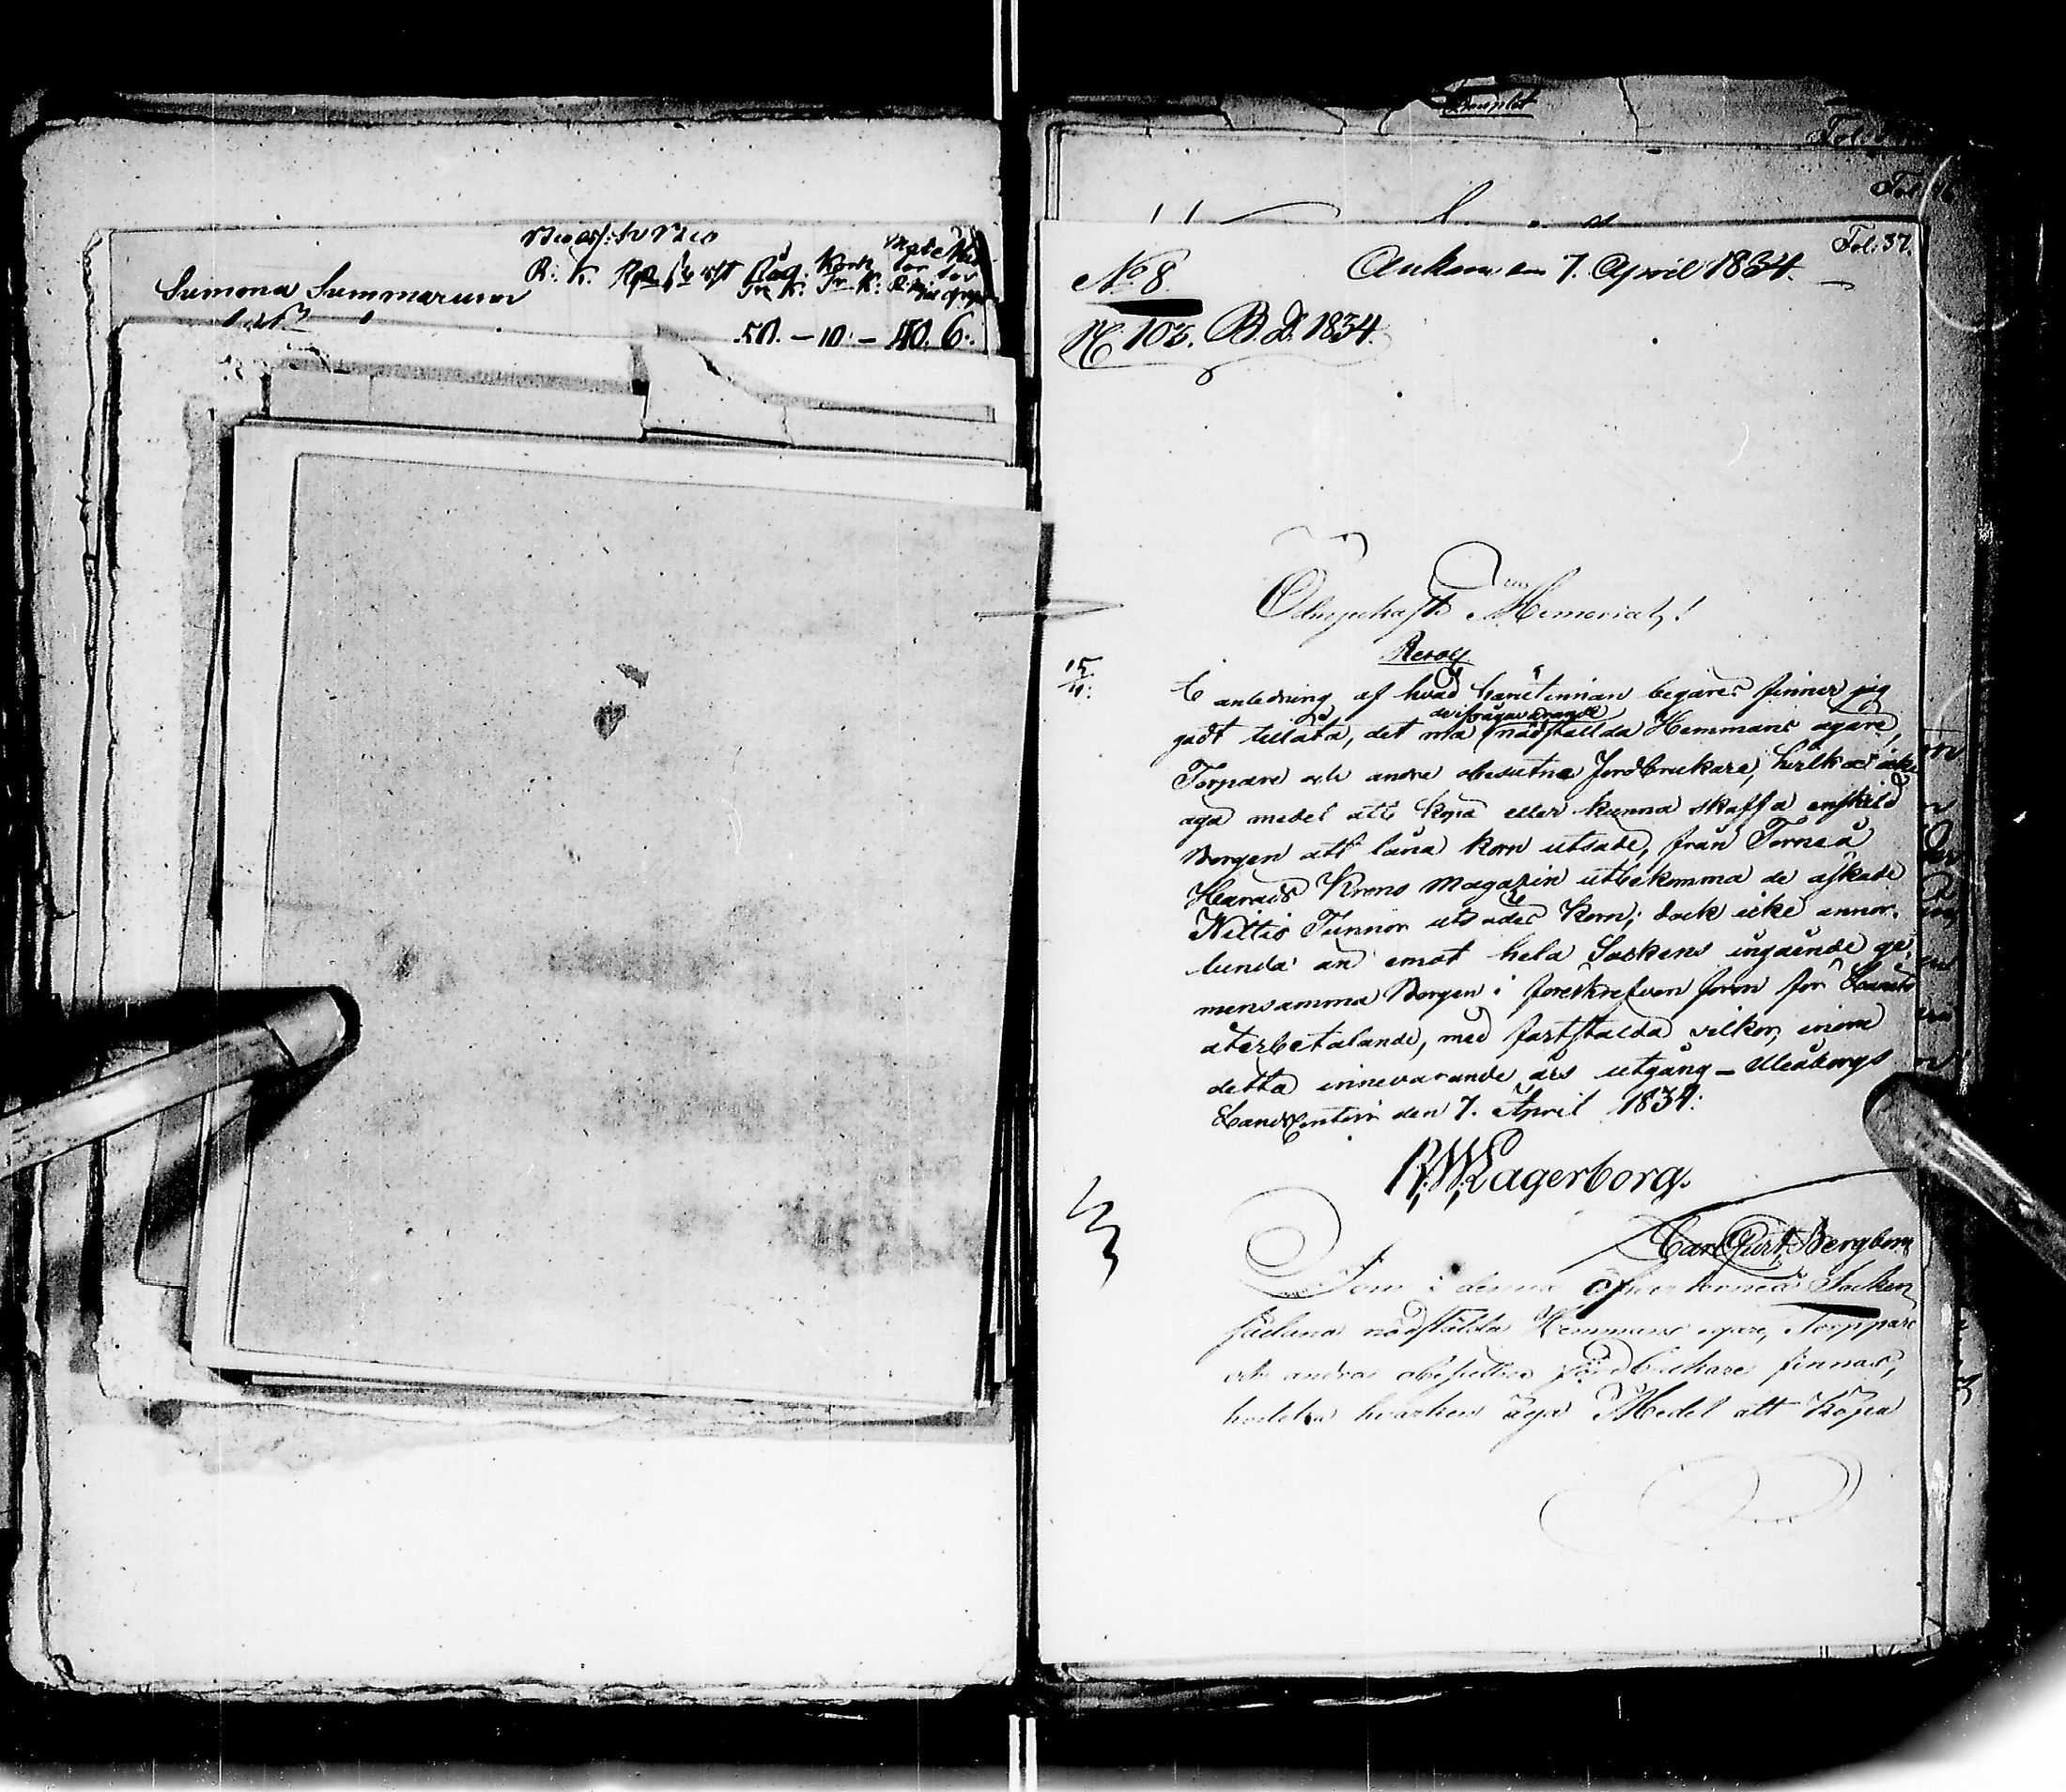 Summa Summarum
R: K.
Råg. Korn
50. — 10: — 40. 6:
Fol: 37.
No 8.
Ankom den 7. April 1834.
N. 103. B. D. 1834.
Ödmjukast Memorial!
Resol:
15/4:
I anledning af hvad härutinnan begäres finner jag
godt tillåta, det må nödstälda Hemmans egare,
Torpare och andre obesutne Jordbrukare, hvilka icke
äga medel att köpa eller kunna skaffa enskild
Borgen att låna korn utsäde, från Torneå
Härads Krono Magazin utbekomma de äskade
Nittio Tunnor utsädes Korn; dock icke annor-
lunda än emot hela Sockens ingående ge-
mensamma Borgen i föreskrefven form för Lånets
återbetalande, med fastställda vilkor, inom
detta innevarande års utgång – Uleåborgs
LandsContoir den 7. April 1834:
R. W. Lagerborg.
Carl Curt Bergbom
Som i denna Öfver torneå Socken
sådana nödstälda Hemmans egare, Torppare
och andra obesuttne jordbrukare finnas,
hvilka hvarken äga Medel att köpa